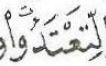 لِّتَعْتَدُوا۟